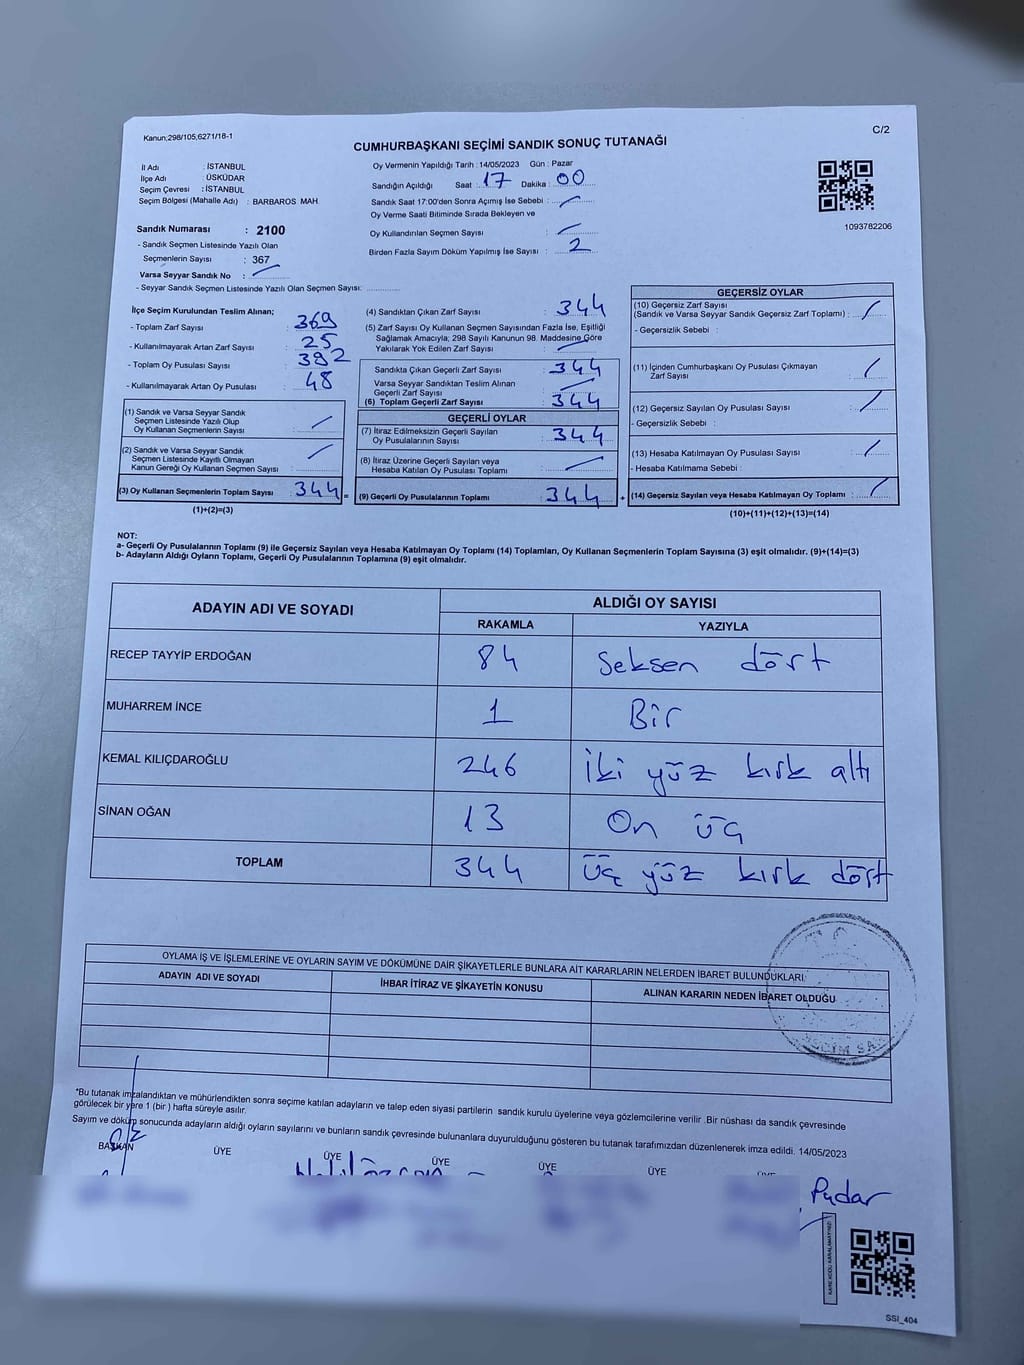 Kanun;298/105,6271/18-1
C/2
CUMHURBAŞKANI SEÇİMİ SANDIK SONUÇ TUTANAĞI
İl Adı : İSTANBUL
İlçe Adı : ÜSKÜDAR
Seçim Çevresi : İSTANBUL
Seçim Bölgesi (Mahalle Adı) : BARBAROS MAH.
Sandık Numarası : 2100
- Sandık Seçmen Listesinde Yazılı Olan
Seçmenlerin Sayısı : 367
Varsa Seyyar Sandık No :
- Seyyar Sandık Seçmen Listesinde Yazılı Olan Seçmen Sayısı:
Oy Vermenin Yapıldığı Tarih : 14/05/2023 Gün : Pazar
Sandığın Açıldığı Saat : 17 Dakika : 00
Sandık Saat 17:00'den Sonra Açımış İse Sebebi :
Oy Verme Saati Bitiminde Sırada Bekleyen ve
Oy Kullandırılan Seçmen Sayısı :
Birden Fazla Sayım Döküm Yapılmış İse Sayısı : 2
1093782206
İlçe Seçim Kurulundan Teslim Alınan;
- Toplam Zarf Sayısı : 369
- Kullanılmayarak Artan Zarf Sayısı : 25
- Toplam Oy Pusulası Sayısı : 392
- Kullanılmayarak Artan Oy Pusulası : 48
(1) Sandık ve Varsa Seyyar Sandık
Seçmen Listesinde Yazılı Olup
Oy Kullanan Seçmenlerin Sayısı :
(2) Sandık ve Varsa Seyyar Sandık
Seçmen Listesinde Kayıtlı Olmayan
Kanun Gereği Oy Kullanan Seçmen Sayısı :
(3) Oy Kullanan Seçmenlerin Toplam Sayısı : 344 =
(1)+(2)=(3)
(4) Sandıktan Çıkan Zarf Sayısı : 344
(5) Zarf Sayısı Oy Kullanan Seçmen Sayısından Fazla İse, Eşitliği
Sağlamak Amacıyla; 298 Sayılı Kanunun 98. Maddesine Göre
Yakılarak Yok Edilen Zarf Sayısı :
Sandıkta Çıkan Geçerli Zarf Sayısı : 344
Varsa Seyyar Sandıktan Teslim Alınan
Geçerli Zarf Sayısı :
(6) Toplam Geçerli Zarf Sayısı : 344
GEÇERLİ OYLAR
(7) İtiraz Edilmeksizin Geçerli Sayılan
Oy Pusulalarının Sayısı : 344
(8) İtiraz Üzerine Geçerli Sayılan veya
Hesaba Katılan Oy Pusulası Toplamı :
(9) Geçerli Oy Pusulalarının Toplamı : 344 +
GEÇERSİZ OYLAR
(10) Geçersiz Zarf Sayısı
(Sandık ve Varsa Seyyar Sandık Geçersiz Zarf Toplamı) :
- Geçersizlik Sebebi :
(11) İçinden Cumhurbaşkanı Oy Pusulası Çıkmayan
Zarf Sayısı :
(12) Geçersiz Sayılan Oy Pusulası Sayısı :
- Geçersizlik Sebebi :
(13) Hesaba Katılmayan Oy Pusulası Sayısı :
- Hesaba Katılmama Sebebi :
(14) Geçersiz Sayılan veya Hesaba Katılmayan Oy Toplamı :
(10)+(11)+(12)+(13)=(14)
NOT:
a- Geçerli Oy Pusulalarının Toplamı (9) ile Geçersiz Sayılan veya Hesaba Katılmayan Oy Toplamı (14) Toplamları, Oy Kullanan Seçmenlerin Toplam Sayısına (3) eşit olmalıdır. (9)+(14)=(3)
b- Adayların Aldığı Oyların Toplamı, Geçerli Oy Pusulalarının Toplamına (9) eşit olmalıdır.
ADAYIN ADI VE SOYADI
ALDIĞI OY SAYISI
RAKAMLA YAZIYLA
RECEP TAYYİP ERDOĞAN 84 Seksen dört
MUHARREM İNCE 1 Bir
KEMAL KILIÇDAROĞLU 246 İki yüz kırk altı
SİNAN OĞAN 13 On üç
TOPLAM 344 üç yüz kırk dört
OYLAMA İŞ VE İŞLEMLERİNE VE OYLARIN SAYIM VE DÖKÜMÜNE DAİR ŞİKAYETLERLE BUNLARA AİT KARARLARIN NELERDEN İBARET BULUNDUKLARI
ADAYIN ADI VE SOYADI İHBAR İTİRAZ VE ŞİKAYETİN KONUSU ALINAN KARARIN NEDEN İBARET OLDUĞU
T.C.
*Bu tutanak imzalandıktan ve mühürlendikten sonra seçime katılan adayların ve talep eden siyasi partilerin sandık kurulu üyelerine veya gözlemcilerine verilir .Bir nüshası da sandık çevresinde
görülecek bir yere 1 (bir ) hafta süreyle asılır.
Sayım ve döküm sonucunda adayların aldığı oyların sayılarını ve bunların sandık çevresinde bulunanlara duyurulduğunu gösteren bu tutanak tarafımızdan düzenlenerek imza edildi. 14/05/2023
BAŞKAN ÜYE ÜYE ÜYE ÜYE ÜYE
Pudar
KARE KODU KARALAMAYINIZ!
SSI_404